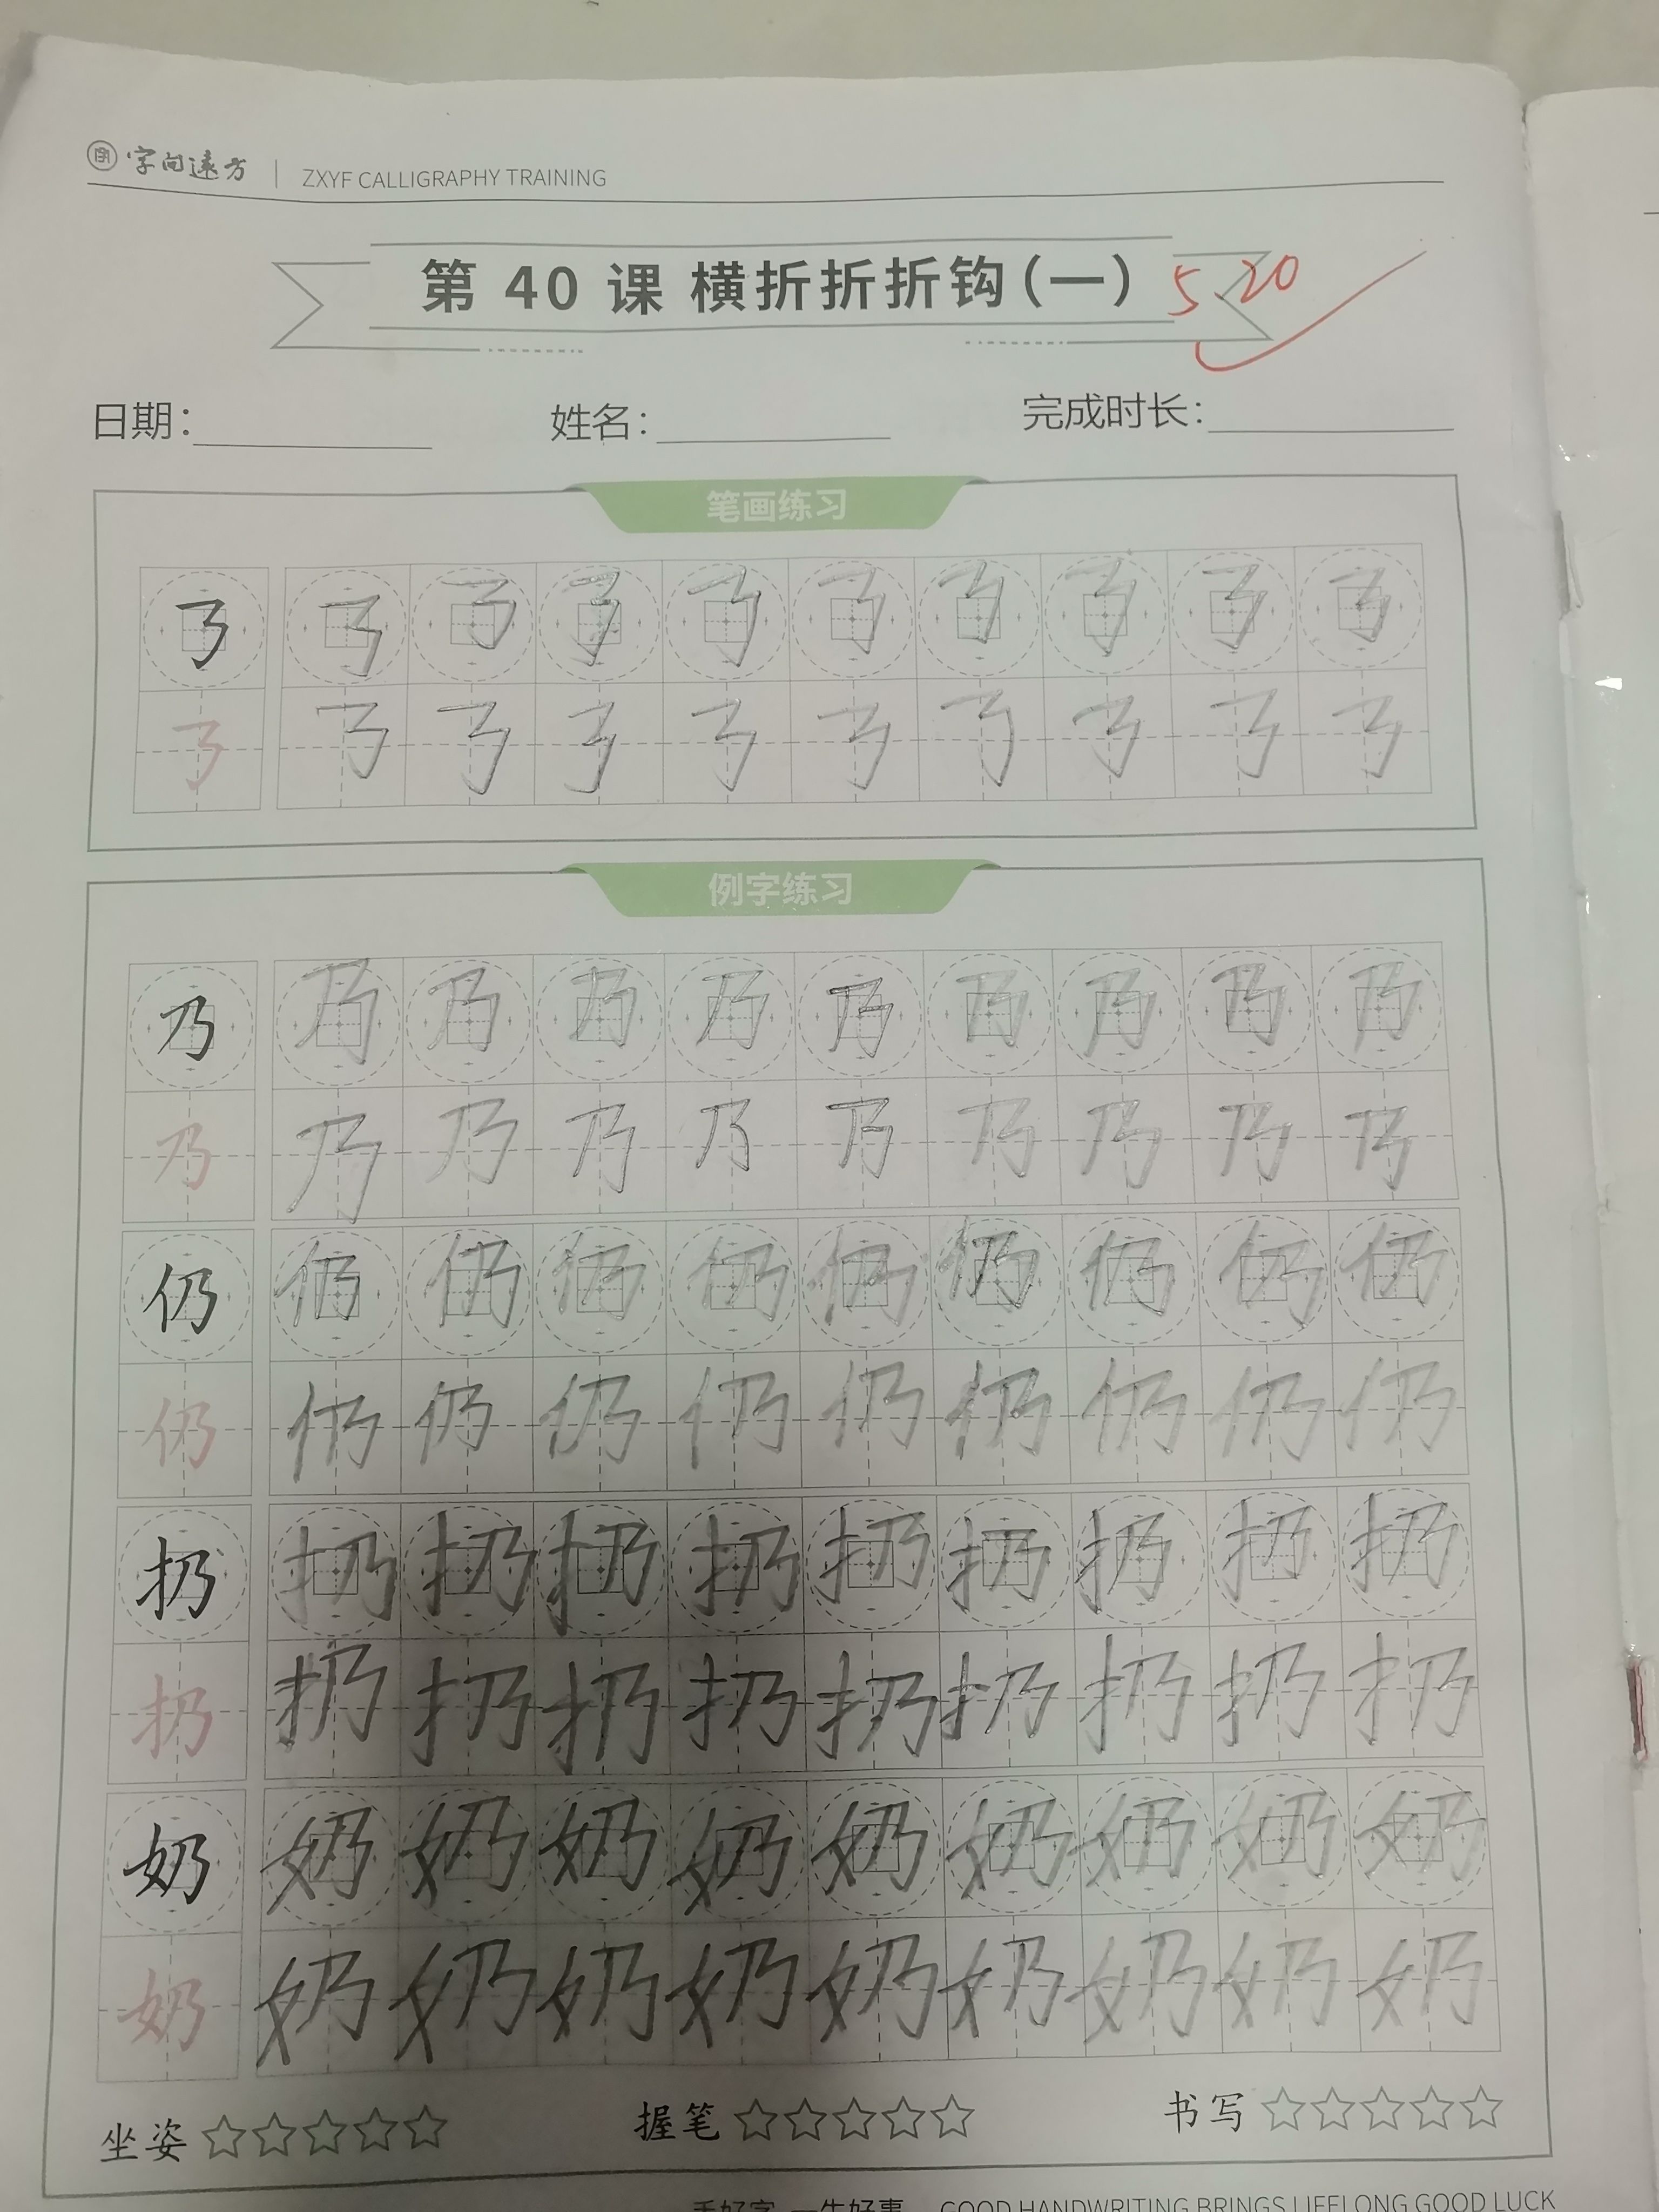 字间远方 ZXYF CALLIGRAPHY TRAINING
第 40 课 横折折折钩(一) 5.20
日期: 姓名: 完成时长:
笔画练习
㇡ ㇡ ㇡ ㇡ ㇡ ㇡ ㇡ ㇡ ㇡ ㇡
㇡ ㇡ ㇡ ㇡ ㇡ ㇡ ㇡ ㇡ ㇡ ㇡
例字练习
乃 乃 乃 乃 乃 乃 乃 乃 乃 乃
乃 乃 乃 乃 乃 乃 乃 乃 乃 乃
仍 仍 仍 仍 仍 仍 仍 仍 仍 仍
仍 仍 仍 仍 仍 仍 仍 仍 仍 仍
扔 扔 扔 扔 扔 扔 扔 扔 扔 扔
扔 扔 扔 扔 扔 扔 扔 扔 扔 扔
奶 奶 奶 奶 奶 奶 奶 奶 奶 奶
奶 奶 奶 奶 奶 奶 奶 奶 奶 奶
坐姿 ☆☆☆☆☆ 握笔 ☆☆☆☆☆ 书写 ☆☆☆☆☆
手好字 一生好事 GOOD HANDWRITING BRINGS LIFELONG GOOD LUCK